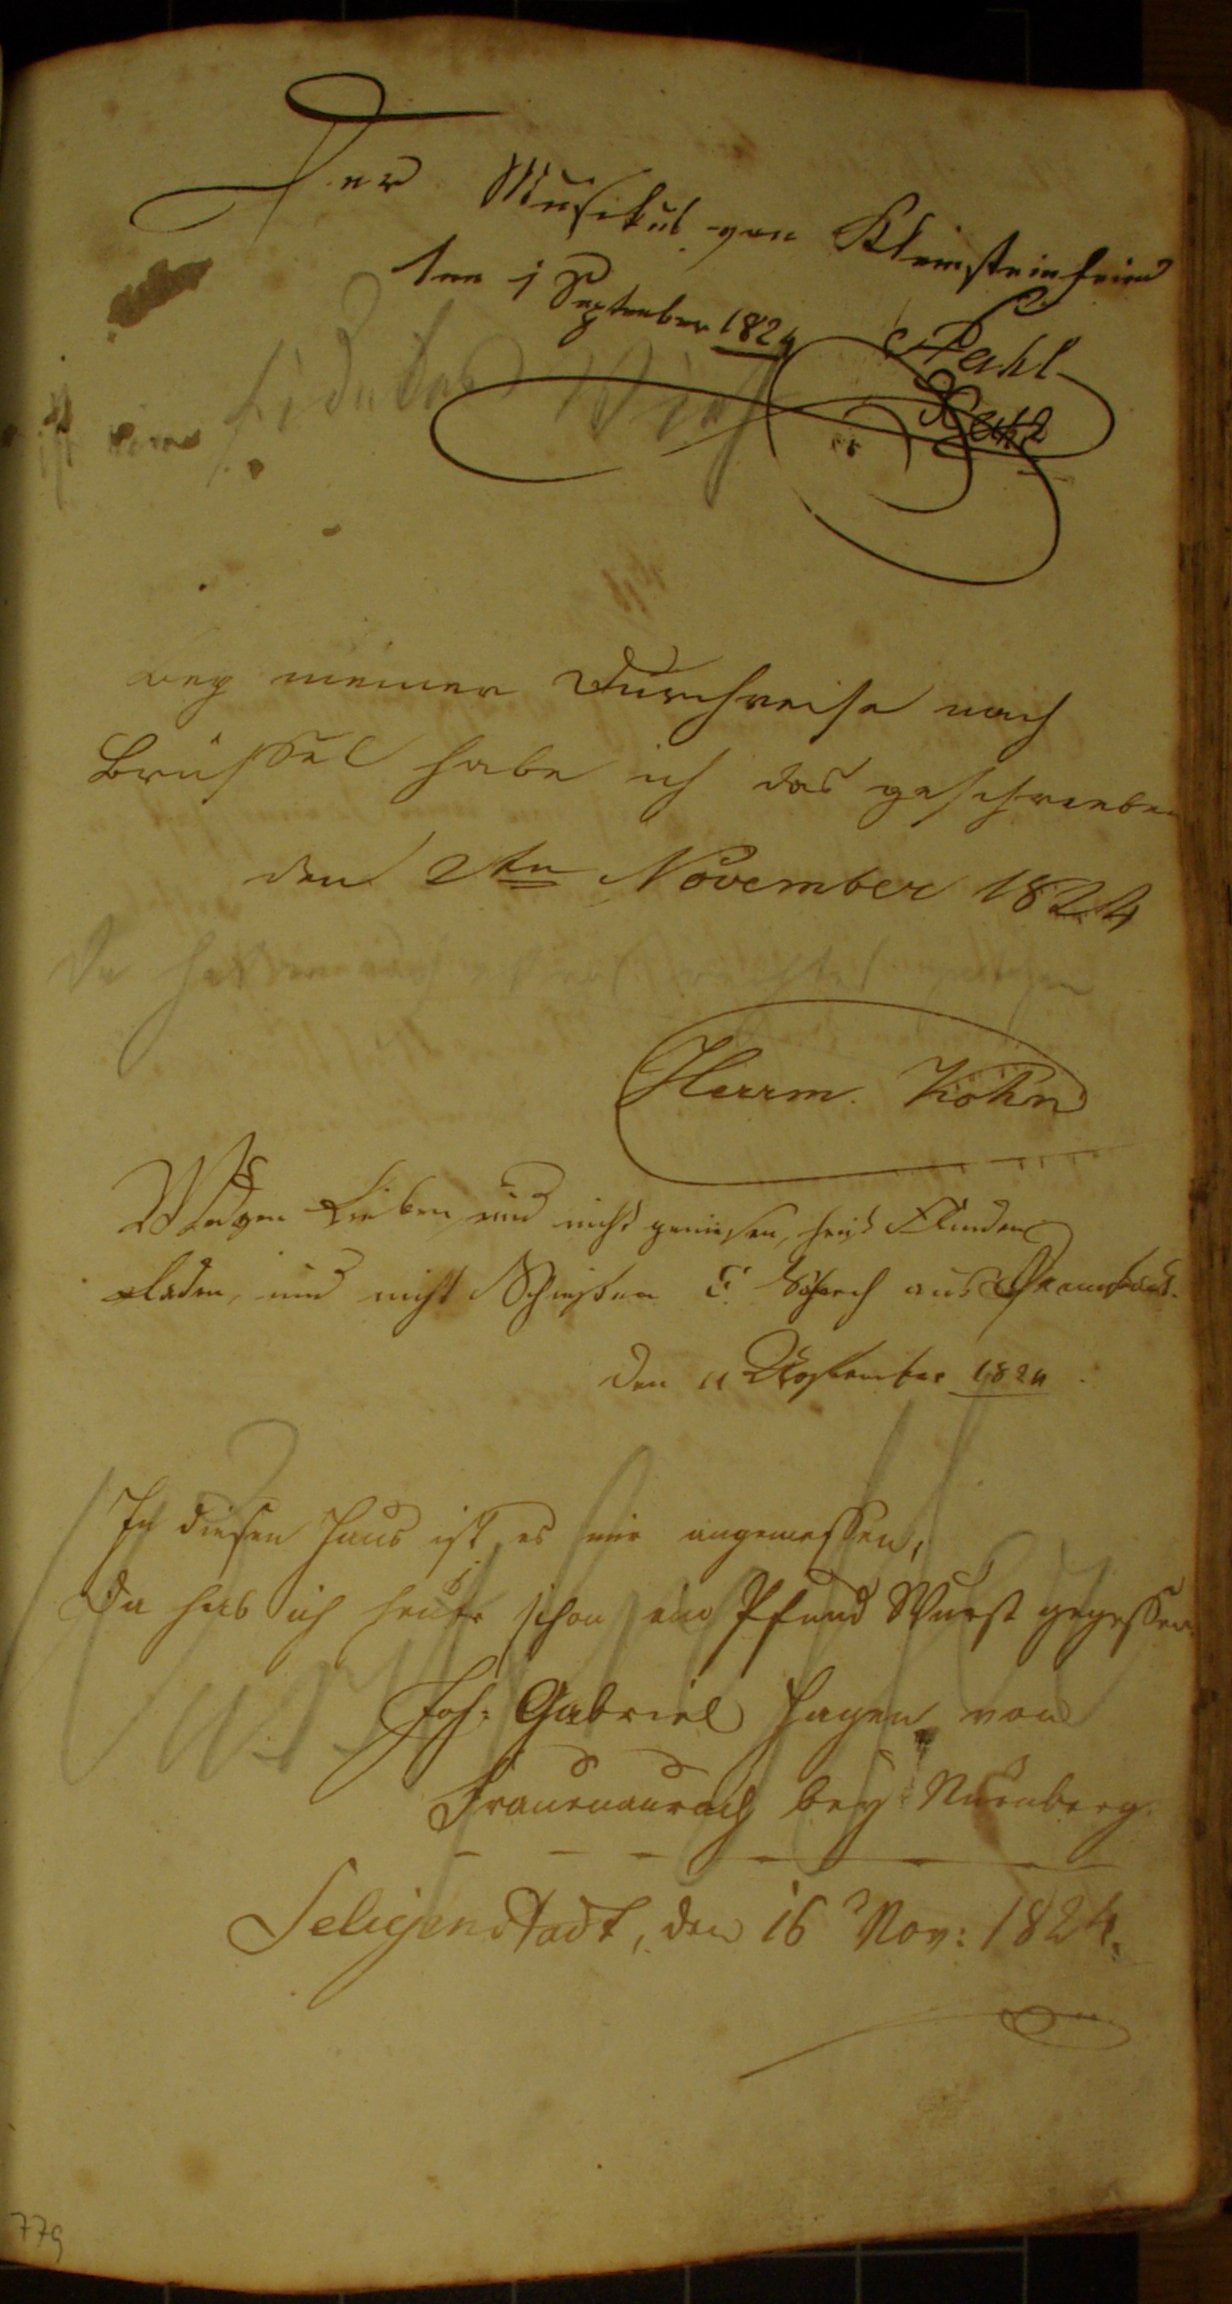 Der Musikus von Kleinsteinheim
den 1 September 1824
Pahl
ist ein fideler Wirth
bey meiner Durchreise nach
Brüssel habe ich das geschrieben
den 2ten November 1824
Herrm. Kohn
Mädgen Lieben und nicht geniesen, heist Flinden
laden, und nicht Schießen aus
den 11 1824
In diesen Haus ist es mir angemessen,
Da hab ich heute schon ein Pfund Wurst gegessen.
Joh: Gabriel Hagen von
Frauenaurach bey Nürnberg.
Seligenstadt, den 16 Nov: 1824.
779